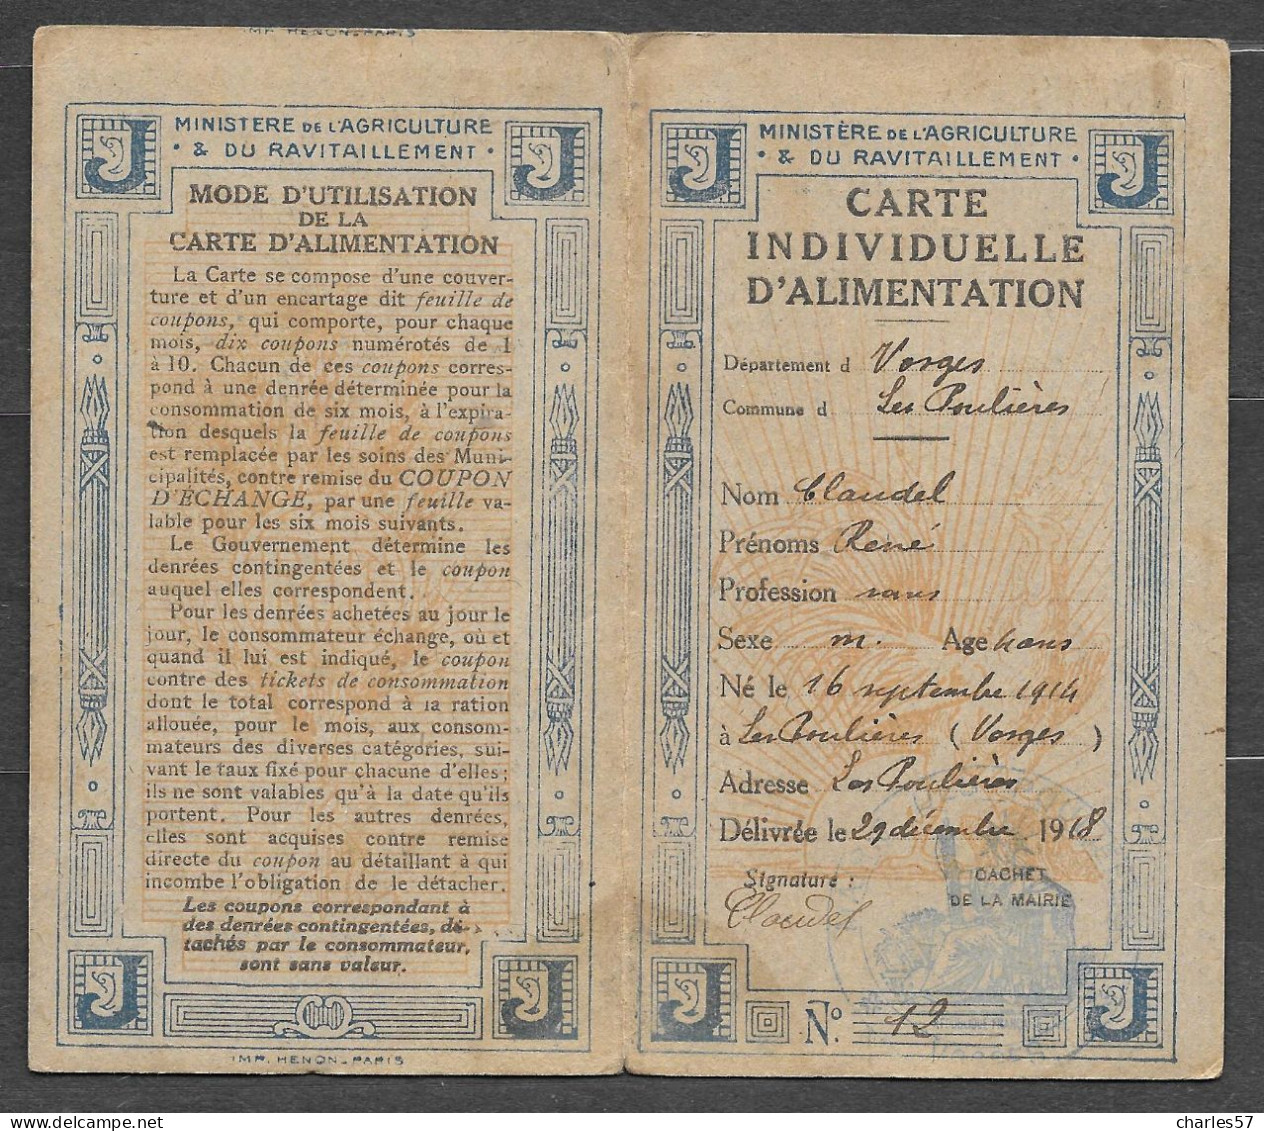 IMP. HENON_PARIS
MINISTERE DE L'AGRICULTURE
• & DU RAVITAILLEMENT •
MODE D'UTILISATION
DE LA
CARTE D'ALIMENTATION
La Carte se compose d'une couver-
ture et d'un encartage dit feuille de
coupons, qui comporte, pour chaque
mois, dix coupons numérotés de 1
à 10. Chacun de ces coupons corres-
pond à une denrée déterminée pour la
consommation de six mois, à l'expira-
tion desquels la feuille de coupons
est remplacée par les soins des Muni-
cipalités, contre remise du COUPON
D'ÉCHANGE, par une feuille va-
lable pour les six mois suivants.
Le Gouvernement détermine les
denrées contingentées et le coupon
auquel elles correspondent.
Pour les denrées achetées au jour le
jour, le consommateur échange, où et
quand il lui est indiqué, le coupon
contre des tickets de consommation
dont le total correspond à la ration
allouée, pour le mois, aux consom-
mateurs des diverses catégories, sui-
vant le taux fixé pour chacune d'elles;
ils ne sont valables qu'à la date qu'ils
portent. Pour les autres denrées,
elles sont acquises contre remise
directe du coupon au détaillant à qui
incombe l'obligation de le détacher.
Les coupons correspondant à
des denrées contingentées, dé-
tachés par le consommateur,
sont sans valeur.
IMP. HENON_PARIS
J
J
J
J
MINISTÈRE DE L'AGRICULTURE
• & DU RAVITAILLEMENT •
CARTE
INDIVIDUELLE
D'ALIMENTATION
Département d Vosges
Commune d Les Poulières
Nom Claudel
Prénoms René
Profession sans
Sexe m. Age 4 ans
Né le 16 septembre 1914
à Les Poulières (Vosges)
Adresse Les Poulières
Délivrée le 29 décembre 1918
Signature :
CACHET
DE LA MAIRIE
Claudel
N° 12
J
J
J
J
charles57